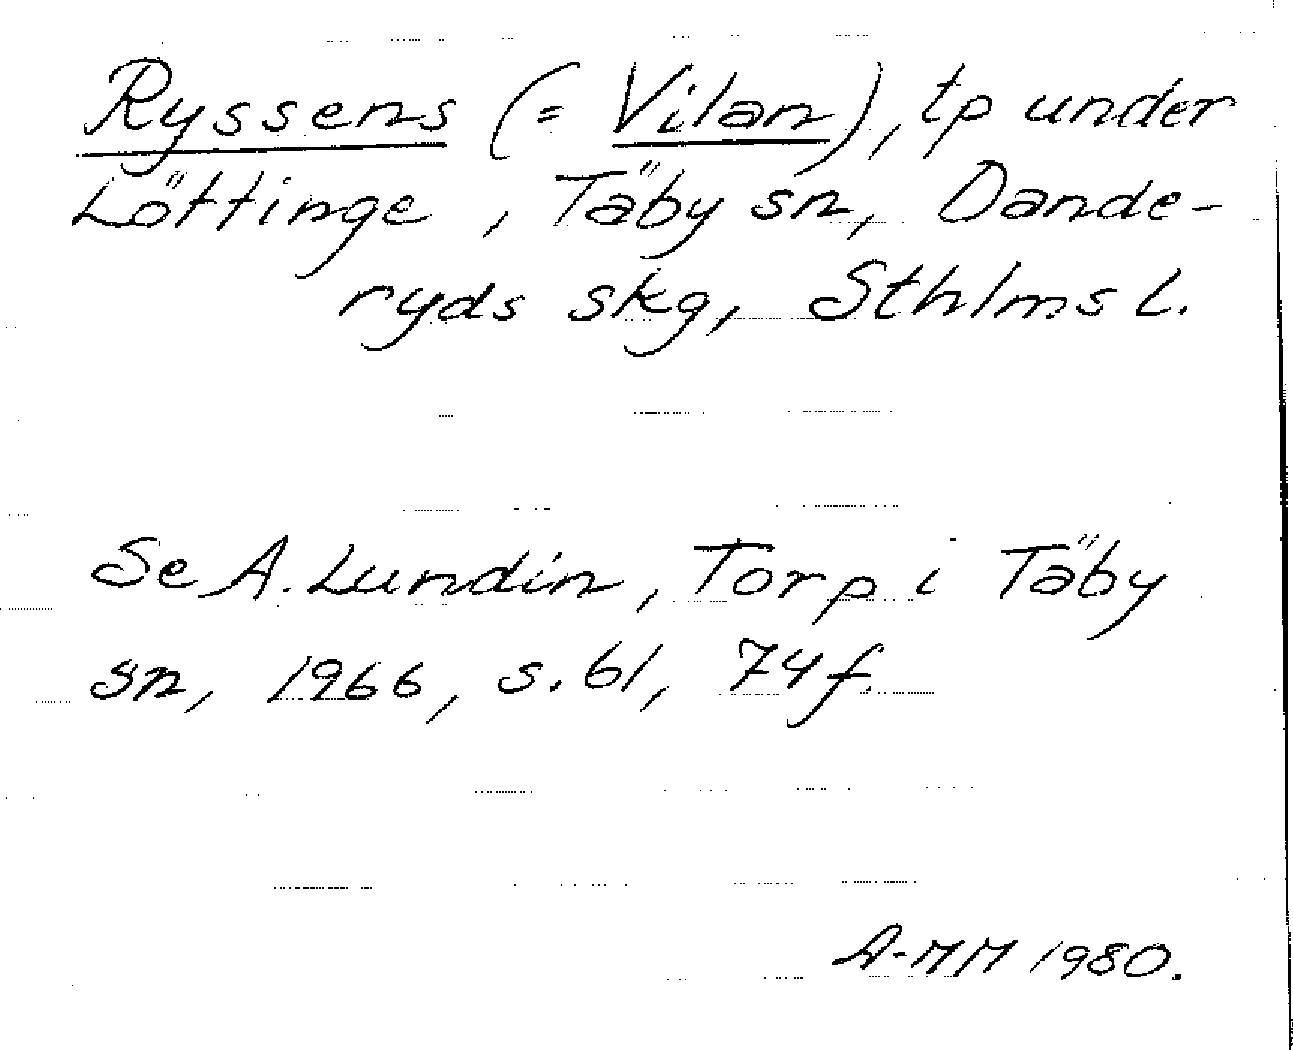 Ryssens (= Vilan), tp under
Löttinge, Täby sn, Dande-
ryds skg, Sthlms l.
Se A. Lundin, Torp i Täby
sn, 1966, s. 61, 74f.
A-MM 1980.